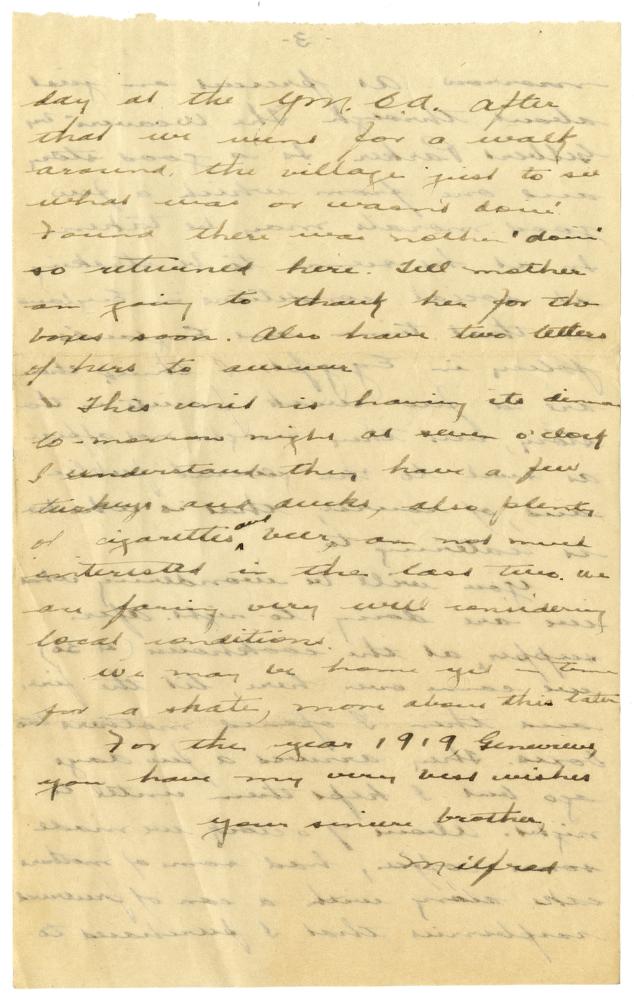 day at the Y.M.C.A. After
that we went for a walk
around the village just to see
what was or wasn't doin'
Found there was nothin' 'doin'
so returned here. Tell mother
am going to thank her for the
boxes soon. Also have two letters
of hers to answer
This unit is having its dinner
to-morrow night at seven o'clock
I understand they have a few
turkeys and ducks, also plenty
of cigarettes and beer, am not much
interested in the last two. We
are faring very well considering
local conditions.
We may be home yet in time
for a skate, more about this later
For the year 1919, Genevieve
you have my very best wishes
your sincere brother
Milfred